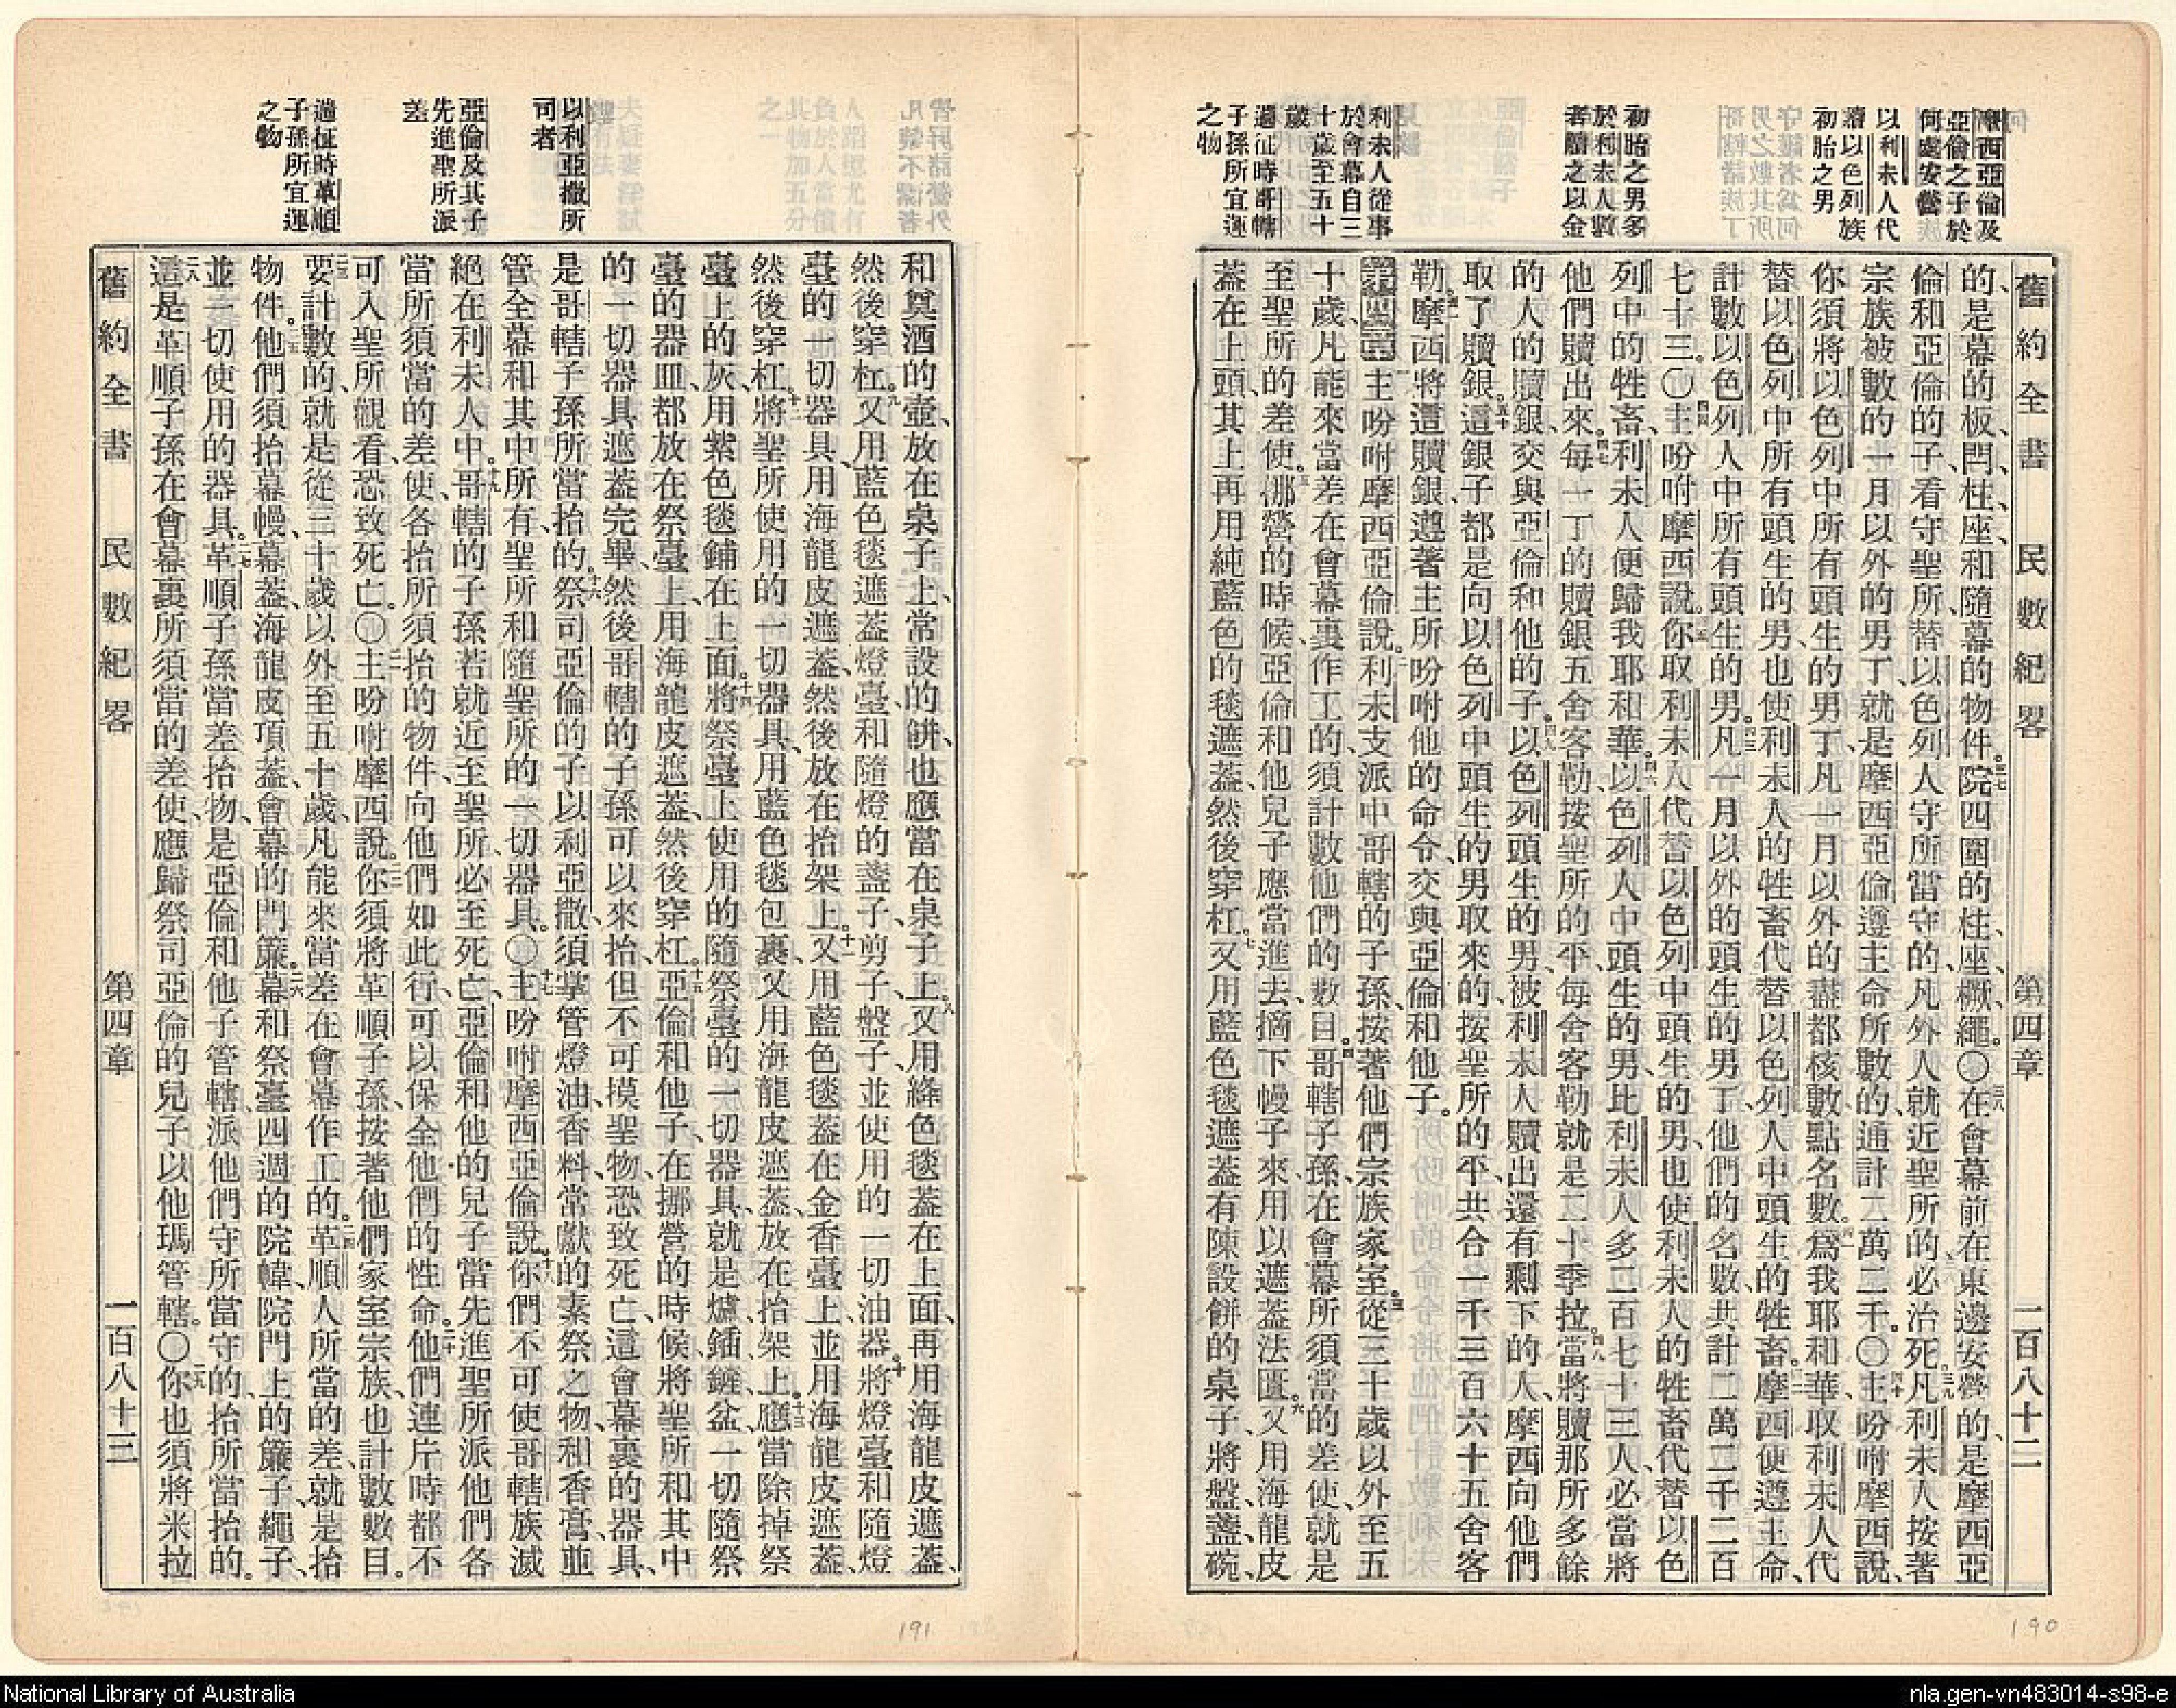 摩西亞倫及
亞倫之子於
何處安營
以利未人代
替以色列族
初胎之男
初胎之男多
於利未人數
者贖之以金
利未人從事
於會幕自三
十歲至五十
歲
遇征時哥轄
子孫所宜運
之物
舊約全書 民數紀畧 第四章 一百八十二
的、是幕的板、閂、柱、座、和隨幕的物件。三七院四圍的柱、座、橛、繩。〇三八在會幕前在東邊安營的、是摩西亞
倫和亞倫的子、看守聖所、替以色列人守所當守的、凡外人就近聖所的、必治死。三九凡利未人按著
宗族被數的一月以外的男丁、就是摩西亞倫遵主命所數的、通計二萬二千。〇四十主吩咐摩西說、
你須將以色列中所有頭生的男丁、凡一月以外的、盡都核數、點名數。四一爲我耶和華取利未人代
替以色列中所有頭生的男、也使利未人的牲畜代替以色列人中頭生的牲畜。四二摩西便遵主命、
計數以色列人中所有頭生的男。四三凡一月以外的頭生的男丁、他們的名數、共計二萬二千二百
七十三。〇四四主吩咐摩西說。四五你取利未人代替以色列中頭生的男、也使利未人的牲畜、代替以色
列中的牲畜、利未人便歸我耶和華。四六以色列人中頭生的男、比利未人多二百七十三人、必當將
他們贖出來。四七每一丁的贖銀五舍客勒、按聖所的平、每舍客勒就是二十季拉。四八當將贖那所多餘
的人的贖銀、交與亞倫和他的子。四九以色列頭生的男、被利未人贖出還有剩下的人、摩西向他們
取了贖銀。五十這銀子都是向以色列中頭生的男取來的、按聖所的平、共合一千三百六十五舍客
勒。五一摩西將這贖銀、遵著主所吩咐他的命令、交與亞倫和他子。
第四章主吩咐摩西亞倫說。二利未支派中哥轄的子孫、按著他們宗族家室。三從三十歲以外至五
十歲、凡能來當差在會幕裏作工的、須計數他們的數目。四哥轄子孫、在會幕所須當的差使、就是
至聖所的差使。五挪營的時候、亞倫和他兒子應當進去、摘下幔子來、用以遮蓋法匱。六又用海龍皮
蓋在上頭、其上再用純藍色的毯遮蓋、然後穿杠。七又用藍色毯遮蓋有陳設餅的桌子、將盤、盞、碗、
190
以利亞撒所
司者
亞倫及其子
先進聖所派
差
遇征時革順
子孫所宜運
之物
和奠酒的壺、放在桌子上、常設的餅、也應當在桌子上。八又用絳色毯蓋在上面、再用海龍皮遮蓋、
然後穿杠。九又用藍色毯遮蓋燈臺、和隨燈的盞子、剪子、盤子、並使用的一切油器。十將燈臺和隨燈
臺的一切器具、用海龍皮遮蓋、然後放在抬架上。十一又用藍色毯蓋在金香臺上、並用海龍皮遮蓋、
然後穿杠。十二將聖所使用的一切器具、用藍色毯包裹、又用海龍皮遮蓋、放在抬架上。十三應當除掉祭
臺上的灰、用紫色毯鋪在上面。十四將祭臺上使用的隨祭臺的一切器具、就是爐、鍤、鏟、盆、一切隨祭
臺的器皿、都放在祭臺上、用海龍皮遮蓋、然後穿杠。十五亞倫和他子、在挪營的時候、將聖所和其中
的一切器具、遮蓋完畢、然後哥轄的子孫可以來抬、但不可摸聖物、恐致死亡、這會幕裏的器具、
是哥轄子孫所當抬的。十六祭司亞倫的子以利亞撒、須掌管燈油、香料、常獻的素祭之物、和香膏、並
管全幕和其中所有、聖所和隨聖所的一切器具。〇十七主吩咐摩西亞倫說。十八你們不可使哥轄族滅
絕在利未人中。十九哥轄的子孫若就近至聖所、必至死亡、亞倫和他的兒子當先進聖所、派他們各
當所須當的差使、各抬所須抬的物件、向他們如此行、可以保全他們的性命。二十他們連片時都不
可入聖所觀看、恐致死亡。〇二一主吩咐摩西說。二二你須將革順子孫、按著他們家室宗族、也計數數目。
二三要計數的、就是從三十歲以外至五十歲、凡能來當差在會幕作工的。二四革順人所當的差、就是抬
物件。二五他們須抬幕幔、幕蓋、海龍皮項蓋、會幕的門簾。二六幕和祭臺四週的院幃、院門上的簾子、繩子、
並一切使用的器具。二七革順子孫當差抬物、是亞倫和他子管轄、派他們守所當守的、抬所當抬的。
二八這是革順子孫在會幕裏所須當的差使、應歸祭司亞倫的兒子以他瑪管轄。〇二九你也須將米拉
舊約全書 民數紀畧 第四章 一百八十三
191
National Library of Australia
nla.gen-vn483014-s98-e